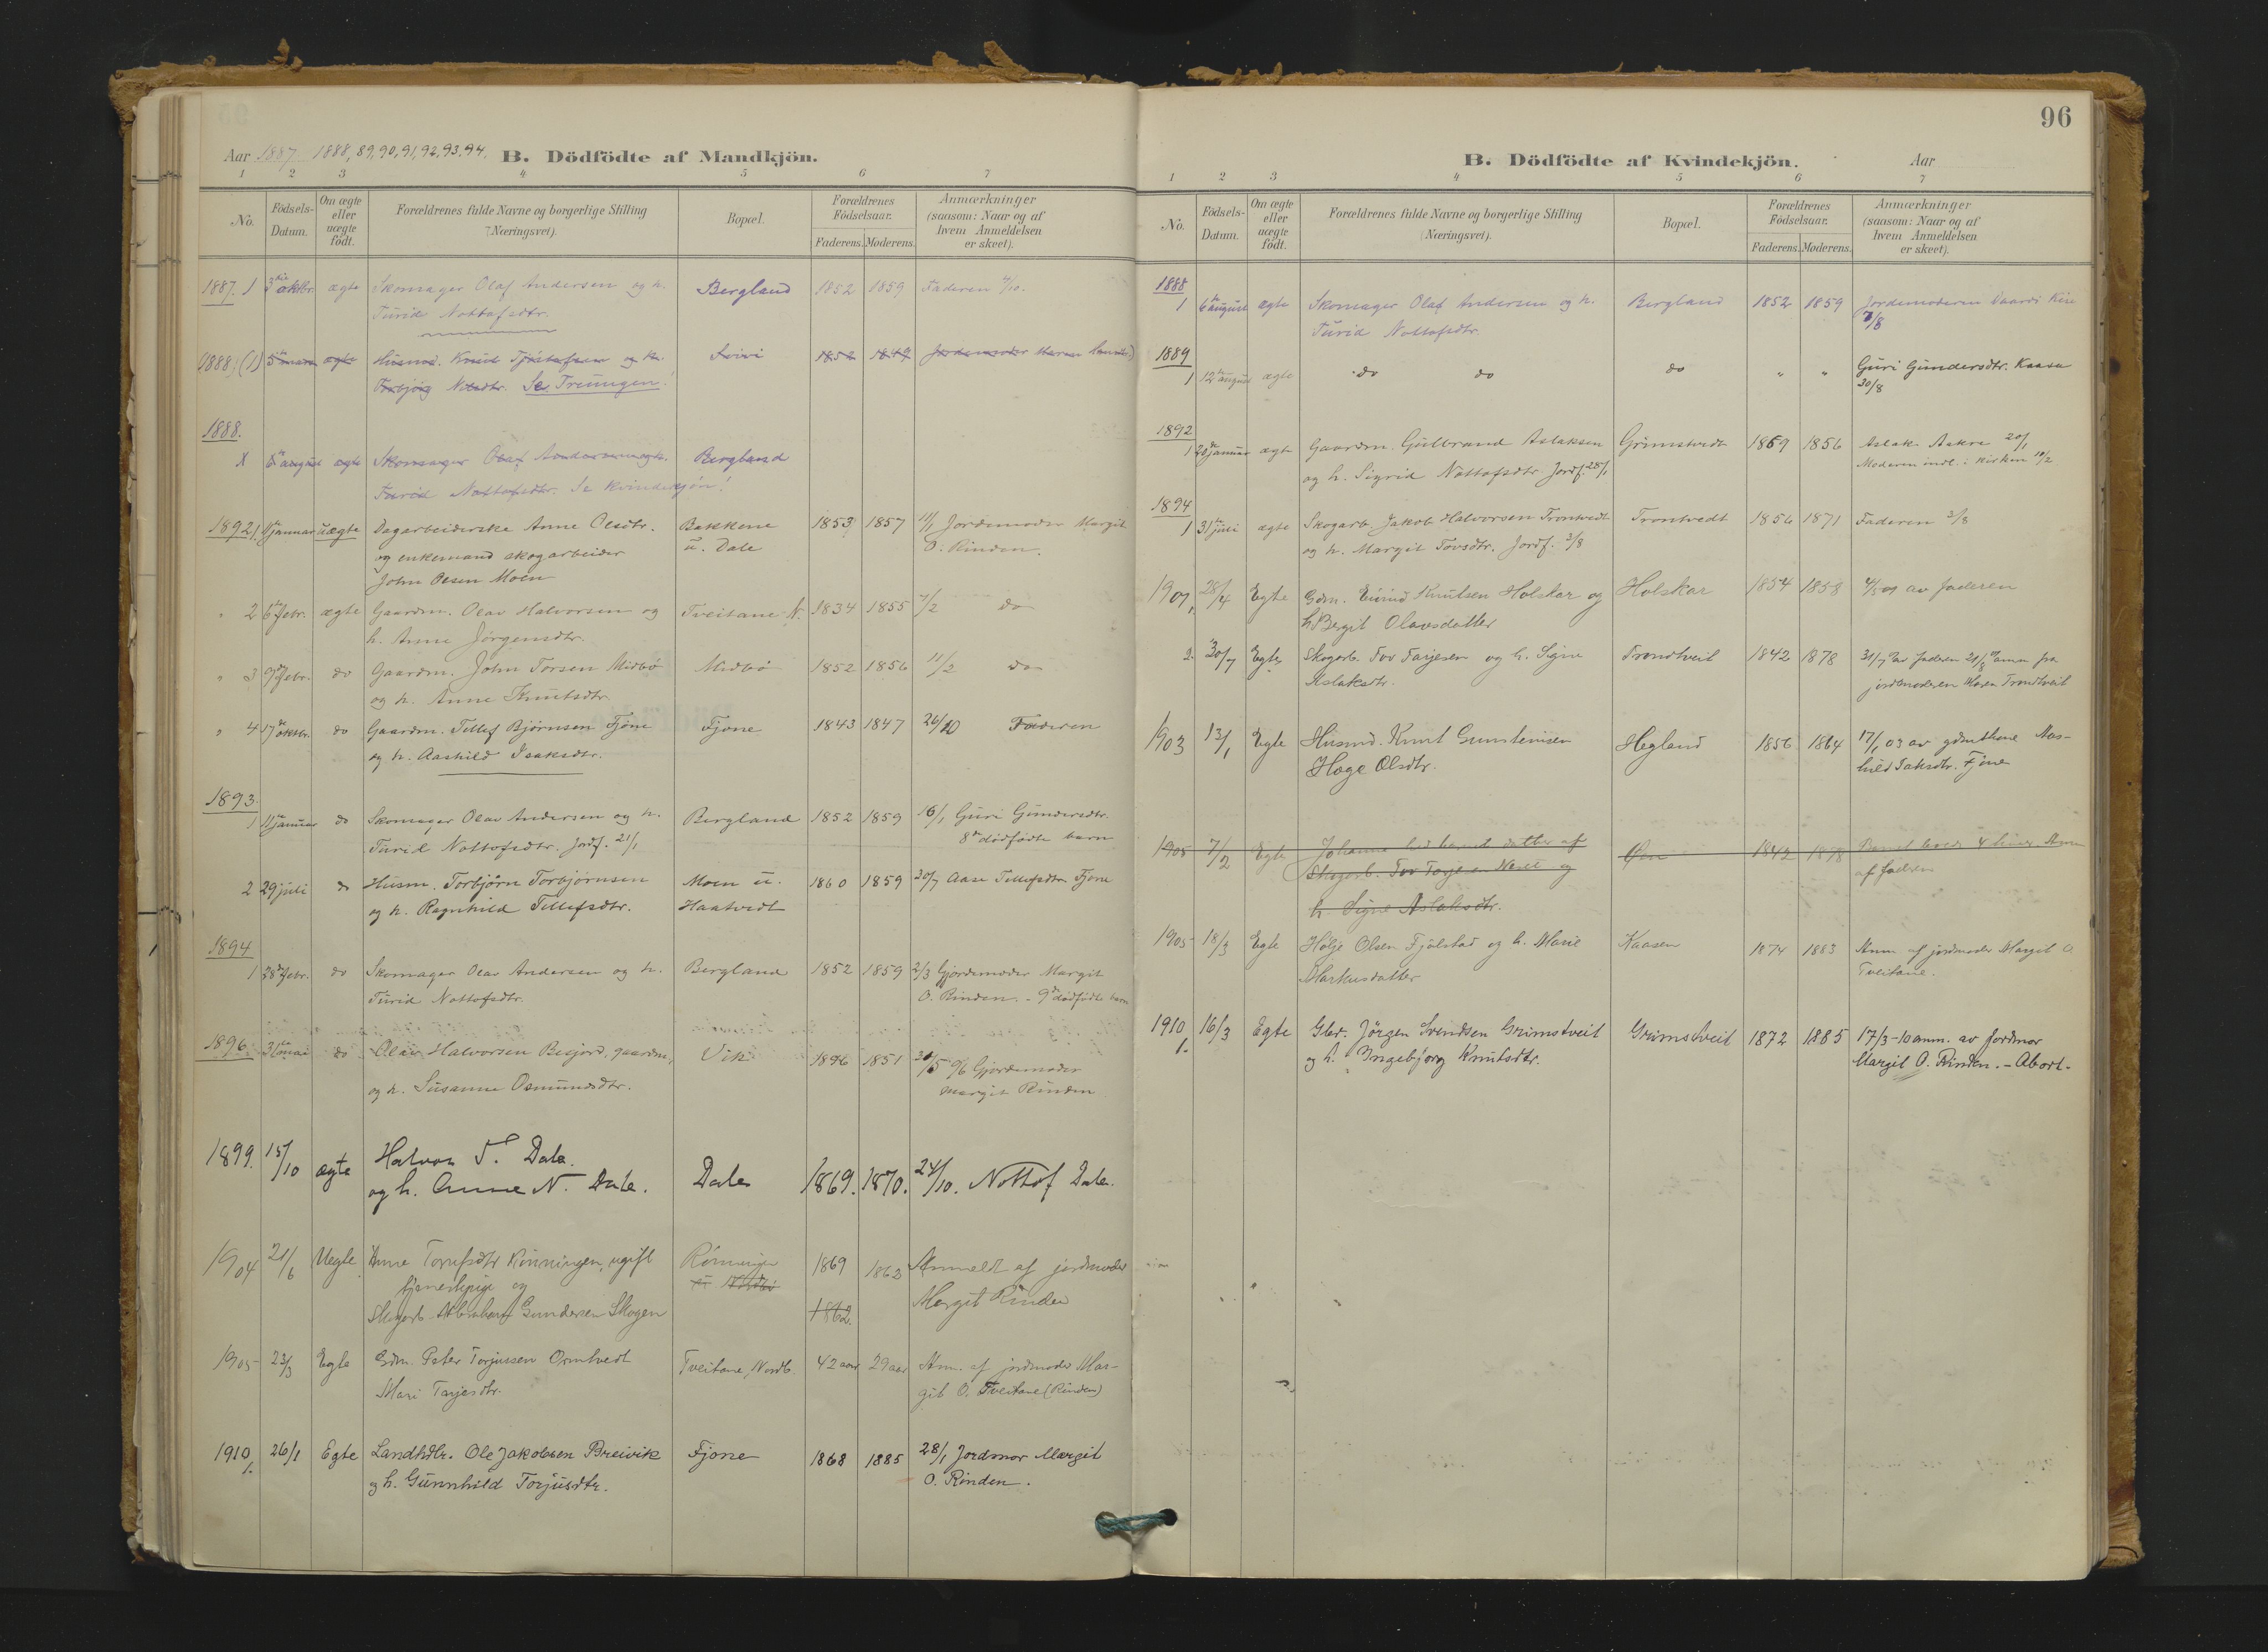 Aar 1887 1888, 89, 90, 91, 92, 93, 94. B. Dödfödte af Mandkjön.
1 2 3 4 5 6 7
No. Födsels-Datum. Om ægte eller uægte født. Forældrenes fulde Navne og borgerlige Stilling (Næringsvei). Bopæl. Forældrenes Födselsaar. Faderens. Moderens. Anmærkninger (saasom: Naar og af hvem Anmeldelsen er skeet).
1887. 1 3die oktbr. ægte Skomager Olaf Andersen og h. Bergland 1852 1859 Faderen 4/10.
Turid Nottofsdtr.
(1888) (1) ægte Husmd. Knud og h. 1852 1849 Jordemoder Maren
Torbjörg Se Treungen!
1888.
X 6te august ægte Skomager Olaf Andersen og h. Bergland
Turid Nottofsdtr. Se Kvindekjön!
1892 1. januar uægte Dagarbeiderske Anne Olsdtr. Bakkene 1853 1857 11/1 Jordemoder Margit
og enkemand skogarbeider u. Dale O. Rinden.
John Olsen Moen
" 2 6te febr. ægte Gaardm. Olav Halvorsen og Tveitane N. 1834 1855 7/2 do
h. Anne Jørgensdtr.
" 3 9de febr. do Gaardm. John Torsen Midbø Midbø 1852 1856 11/2 do
og h. Anne Knutsdtr
" 4 17de oktbr. do Gaardm. Tellef Bjørnsen Fjone Fjone 1843 1847 26/10 Faderen
og h. Aashild Isaksdtr.
1893.
1 11te januar do Skomager Olav Andersen og h. Bergland 1852 1859 16/1 Guri Gundersdtr.
Turid Nottofsdtr. Jordf. 21/1 8de dødfødte barn
2 29 juli do Husm. Torbjörn Torbjörnsen Moen u. 1860 1859 30/7 Aase Tellefsdtr Fjone
og h. Ragnhild Tellefsdtr. Haatvedt
1894
1 28de febr. do Skomager Olav Andersen og h. Bergland 1852 1859 2/3 Gjordemoder Margit
Turid Nottofsdtr. O. Rinden. - 9de dødfødte barn
1896. 31te mai do Olav Halvorsen gaardm. Vik 1851 96 Gjordemoder
og h. Susanne Osmundsdtr. Margit Rinden
1899. 15/10 ægte Halvor T. Dale. Dale 1869. 1870. 24/10. Nottof Dale.
og h. Anne N. Dale.
1904 21/6 Uegte Anne ugift 1869 1862 Anmeldt af jordmoder
tjenestepige og Margit Rinden
Skogarb. Abraham Gundersen Skogen 1862.
1905 23/3 Egte Gdm. Peter Torjussen Ormtvedt Tveitane, Nordb. 42 aar 29 aar Anm. af jordmoder Mar-
Mari Tarjesdtr. git O. Tveitane (Rinden)
1910 1. 26/1 Egte Landhdlr. Ole Jakobsen Breivik Fjone 1868 1885 28/1 Jordmor Margit
og h. Gunnhild Torjusdtr. O. Rinden.
96
B. Dödfödte af Kvindekjön. Aar
1 2 3 4 5 6 7
No. Födsels-Datum. Om ægte eller uægte födt. Forældrenes fulde Navne og borgerlige Stilling (Næringsvei). Bopæl. Forældrenes Födselsaar. Faderens. Moderens. Anmærkninger (saasom: Naar og af hvem Anmeldelsen er skeet).
1888
1 6te august ægte Skomager Olaf Andersen og h. Bergland 1852 1859 Jordemoderen
Turid Nottofsdtr. 7/8
1889
1 12te august ægte do do do " " Guri Gundersdtr. Kaasa
30/8
1892
1 20de januar ægte Gaardm. Gulbrand Aslaksen Grimstvedt 1859 1856 Aslak Aakre 20/1
og h. Sigrid Nottofsdtr. Jordf. 28/1 Moderen indl. i kirken 14/2
1894
1 31te juli ægte Skogarb. Jakob Halvorsen Trontvedt Trontvedt 1856 1871 Faderen 3/8
og h. Margit Tovsdtr. Jordf. 3/8
1901 1. 28/4 Egte Gdm. Eivind Knutsen Holskar og Holskar 1854 1858 4/5 01 av faderen
h. Bergit Olavsdatter
2. 30/7 Egte Skogarb. Tov Tarjesen og h. Signe Trondtveit 1842 1878 31/7 av faderen 21/8 anm. fra
Aslaksdtr. jordmoderen Maren Trondtveit
1903 13/1 Egte Husmd. Knut Gunsteinsen Hegland 1856 1864 17/1 03 av gdmkone Aas-
Hæge Olsdtr. hild Isaksdtr. Fjone
1905 7/2 Egte Johanna datter af 1842 1878 Barnet levede 4 timer Anm.
Skogarb. Tov Tarjesen og af faderen
h. Signe Aslaksdtr.
1905 18/3 Egte Hølje Olsen Fjolstad og h. Marie Kaasen 1874 1883 Anm. af jordmoder Margit O.
Markusdatter Tveitane.
1910 1. 16/3 Egte Gbr. Jörgen Svendsen Grimstveit Grimstveit 1872 1885 17/3-10 anm. av Jordmor
og h. Ingebjorg Knutsdtr. Margit O. Rinden. - Abort.